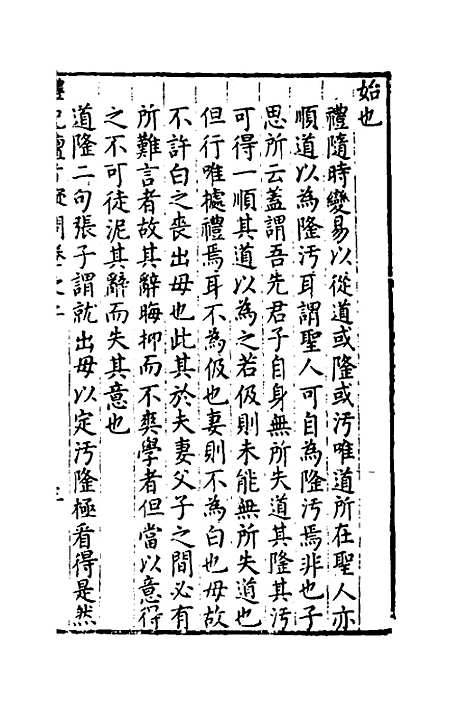 始也
禮隨時變易以從道或隆或汚唯道所在聖人亦
順道以為隆汚耳謂聖人可自為隆汚焉非也子
思所云葢謂吾先君子自身無所失道其隆其汚
可得一順其道以為之若伋則未能無所失道也
但行唯據禮焉耳不為伋也妻則不為白也母故
不許白之喪出母也此其於夫妻父子之間必有
所難言者故其辭晦抑而不爽學者但當以意得
之不可徒泥其辭而失其意也
道隆二句張子謂就出母以定汚隆極看得是然